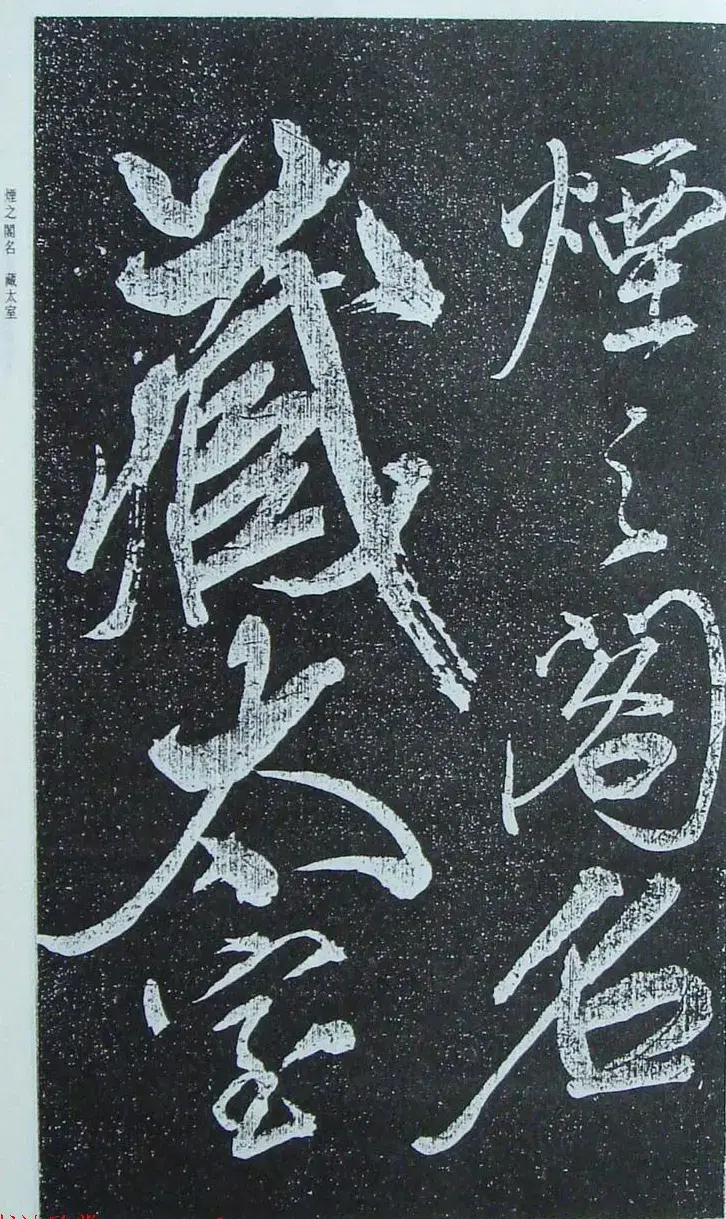 煙之閣名
藏太室
煙之閣名 藏太室